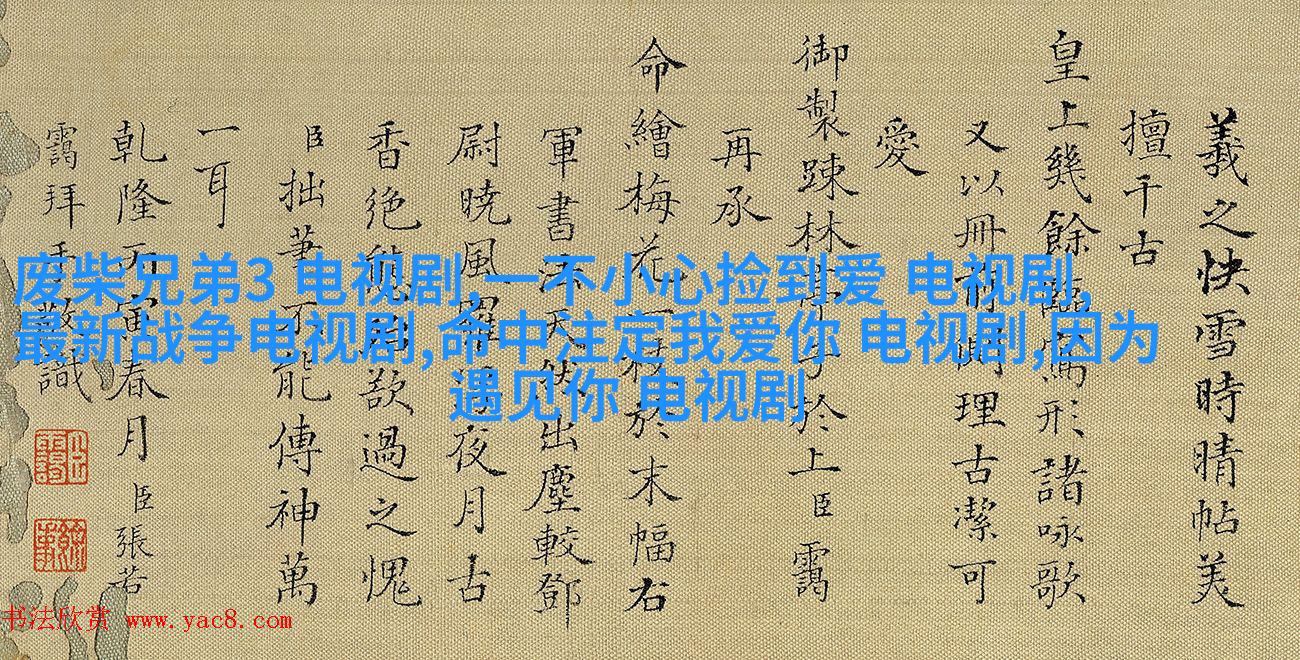 羲之快雪時晴帖美
擅千古
皇上幾餘臨寫形諸咏歌
又以冊前間理古潔可
愛
御製踈林亭子於上臣靄
再承
命繪梅花一枝於末幅右
軍書法天然出塵較鄧
尉曉風羅浮夜月古
香絶欲過之愧
臣拙筆不能傳神萬
一耳
乾隆丙寅春月臣張若
靄拜手敬識
废柴兄弟3 电视剧,一不小心捡到爱 电视剧,
最新战争电视剧,命中注定我爱你 电视剧,因为
遇见你 电视剧
书法欣赏 www.yac8.com